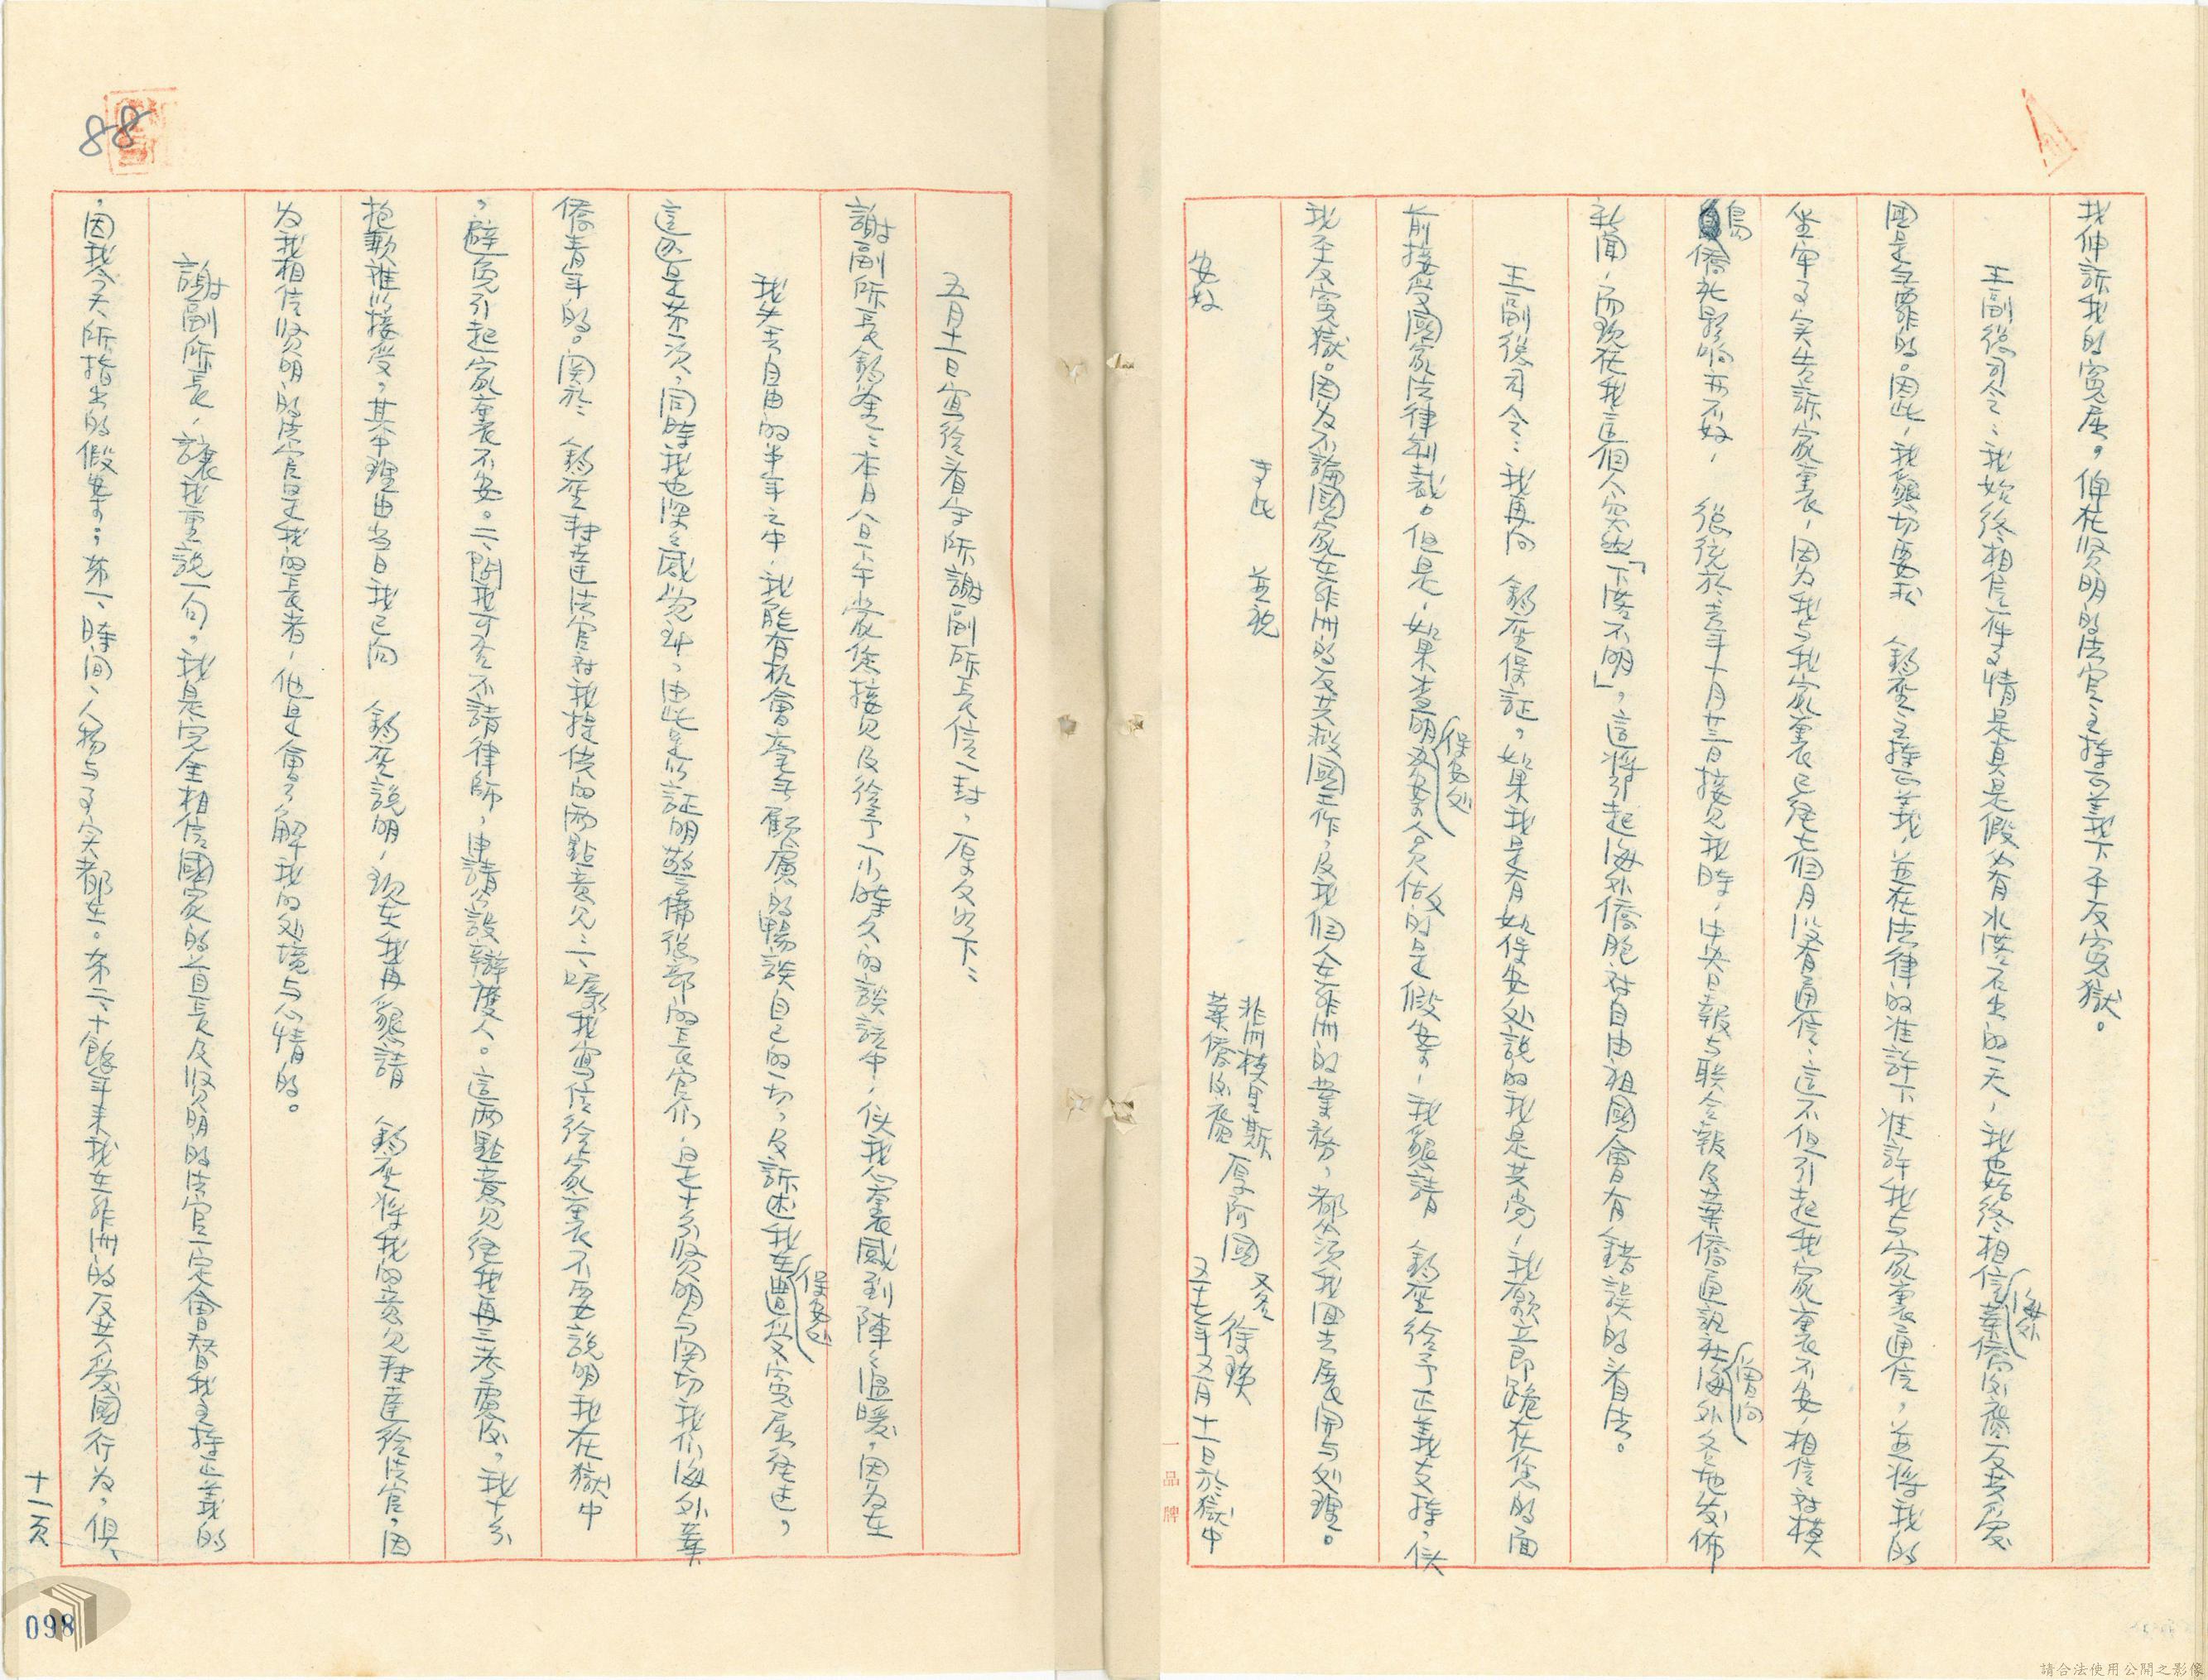 找伸訴我的寃屈。俾在贤明的法官主持正義下平反寃獄。
王副總司令：我始終相信一件事情是真是假必有水落石出的一天，我也始終相信海外華僑傋反共爱
國是無罪的。因此，我懇切要求　鈞座主持正義，並在法律的准許下准許我与家裏通信，並将我的
坐牢事实告訴家裏，因为我与我家裏已經七個月没有通信，這不但引起我家裏不安，相信对模
島僑社影响亦不好，　總統於去年十月廿三日接見我時，中央日報与联合報及華僑通訊社曾向海外各地发佈
新聞，而现在我這個人突然「下落不明」，這将引起海外僑胞对自由祖國會有錯誤的看法。
王副總司令：我再向　鈞座保証，如果我是有如保安处說的我是共党，我願立即跪在您的面
前接受國家法律制裁。但是，如果查明保安处办案人员故作的是假案，我懇請　鈞座給予正義支持，使
我平反寃獄。因为不論國家在非洲的反共救國工作，及我個人在非洲的業務，都必須我回去展開与处理。
專此　並祝
安好
非洲模里斯
華僑
厚阿國
又名　徐瑛
五十七年五月十一日於獄中
一品牌
五月十一日寫給看守所謝副所長信一封，原文如下：
謝副所長鈞鉴：本月八日下午蒙您接見及給予一小時久的談話中，使我心裏感到陣々溫暖，因为在
我失去自由的半年之中，我能有机會毫无顧慮的暢談自己的一切，及訴述我在保安处遭受寃屈經过，
這还是第一次，同時我也深々感觉到，由此足以証明警備總部的長官们，是十分贤明与関切我们海外華
僑青年的。関於　鈞座転達法官对我提供的兩點意見：一、嘱我寫信給家裏不要說明我在獄中
，避免引起家裏不安。二、問我可否不請律師，申請公設辯護人。這兩點意見經我再三考慮後，我十分
抱歉难以接受，其中理由当日我已向　鈞座說明，现在我再懇請　鈞座将我的意見転達給法官，因
为我相信贤明的法官是我的長者，他是會了解我的处境与心情的。
謝副所長，讓我重說一句，我是完全相信國家的首長及贤明的法官一定會替我主持正義的
，因我今天所指出的假案：第一、時间、人物与事实都在。第二、十餘年来我在非洲的反共爱國行为，俱
十一頁
88
098
請合法使用公開之影像